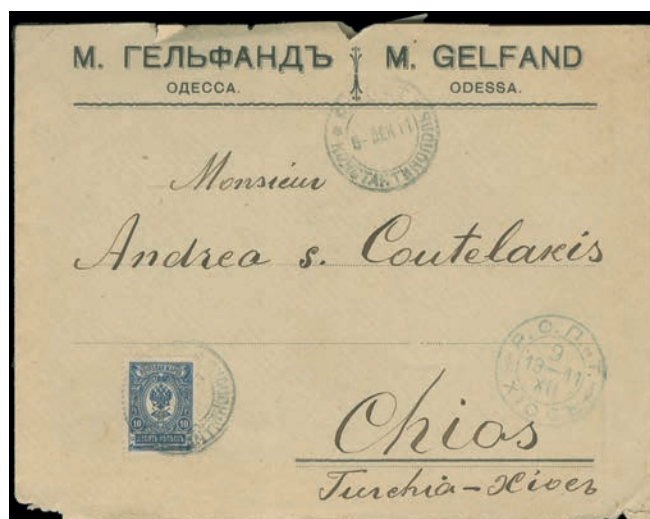 М. ГЕЛЬФАНДЪ
ОДЕССА.
M. GELFAND
ODESSA.
КОНСТАНТИНОПОЛЬ
Monsieur
Andrea s. Coutelakis
Р.О.П.иТ.
9
19–11
XII
ХІОСЪ
10 10
ДЕСЯТЬ КОПѢЕКЪ
Chios
Turchia –